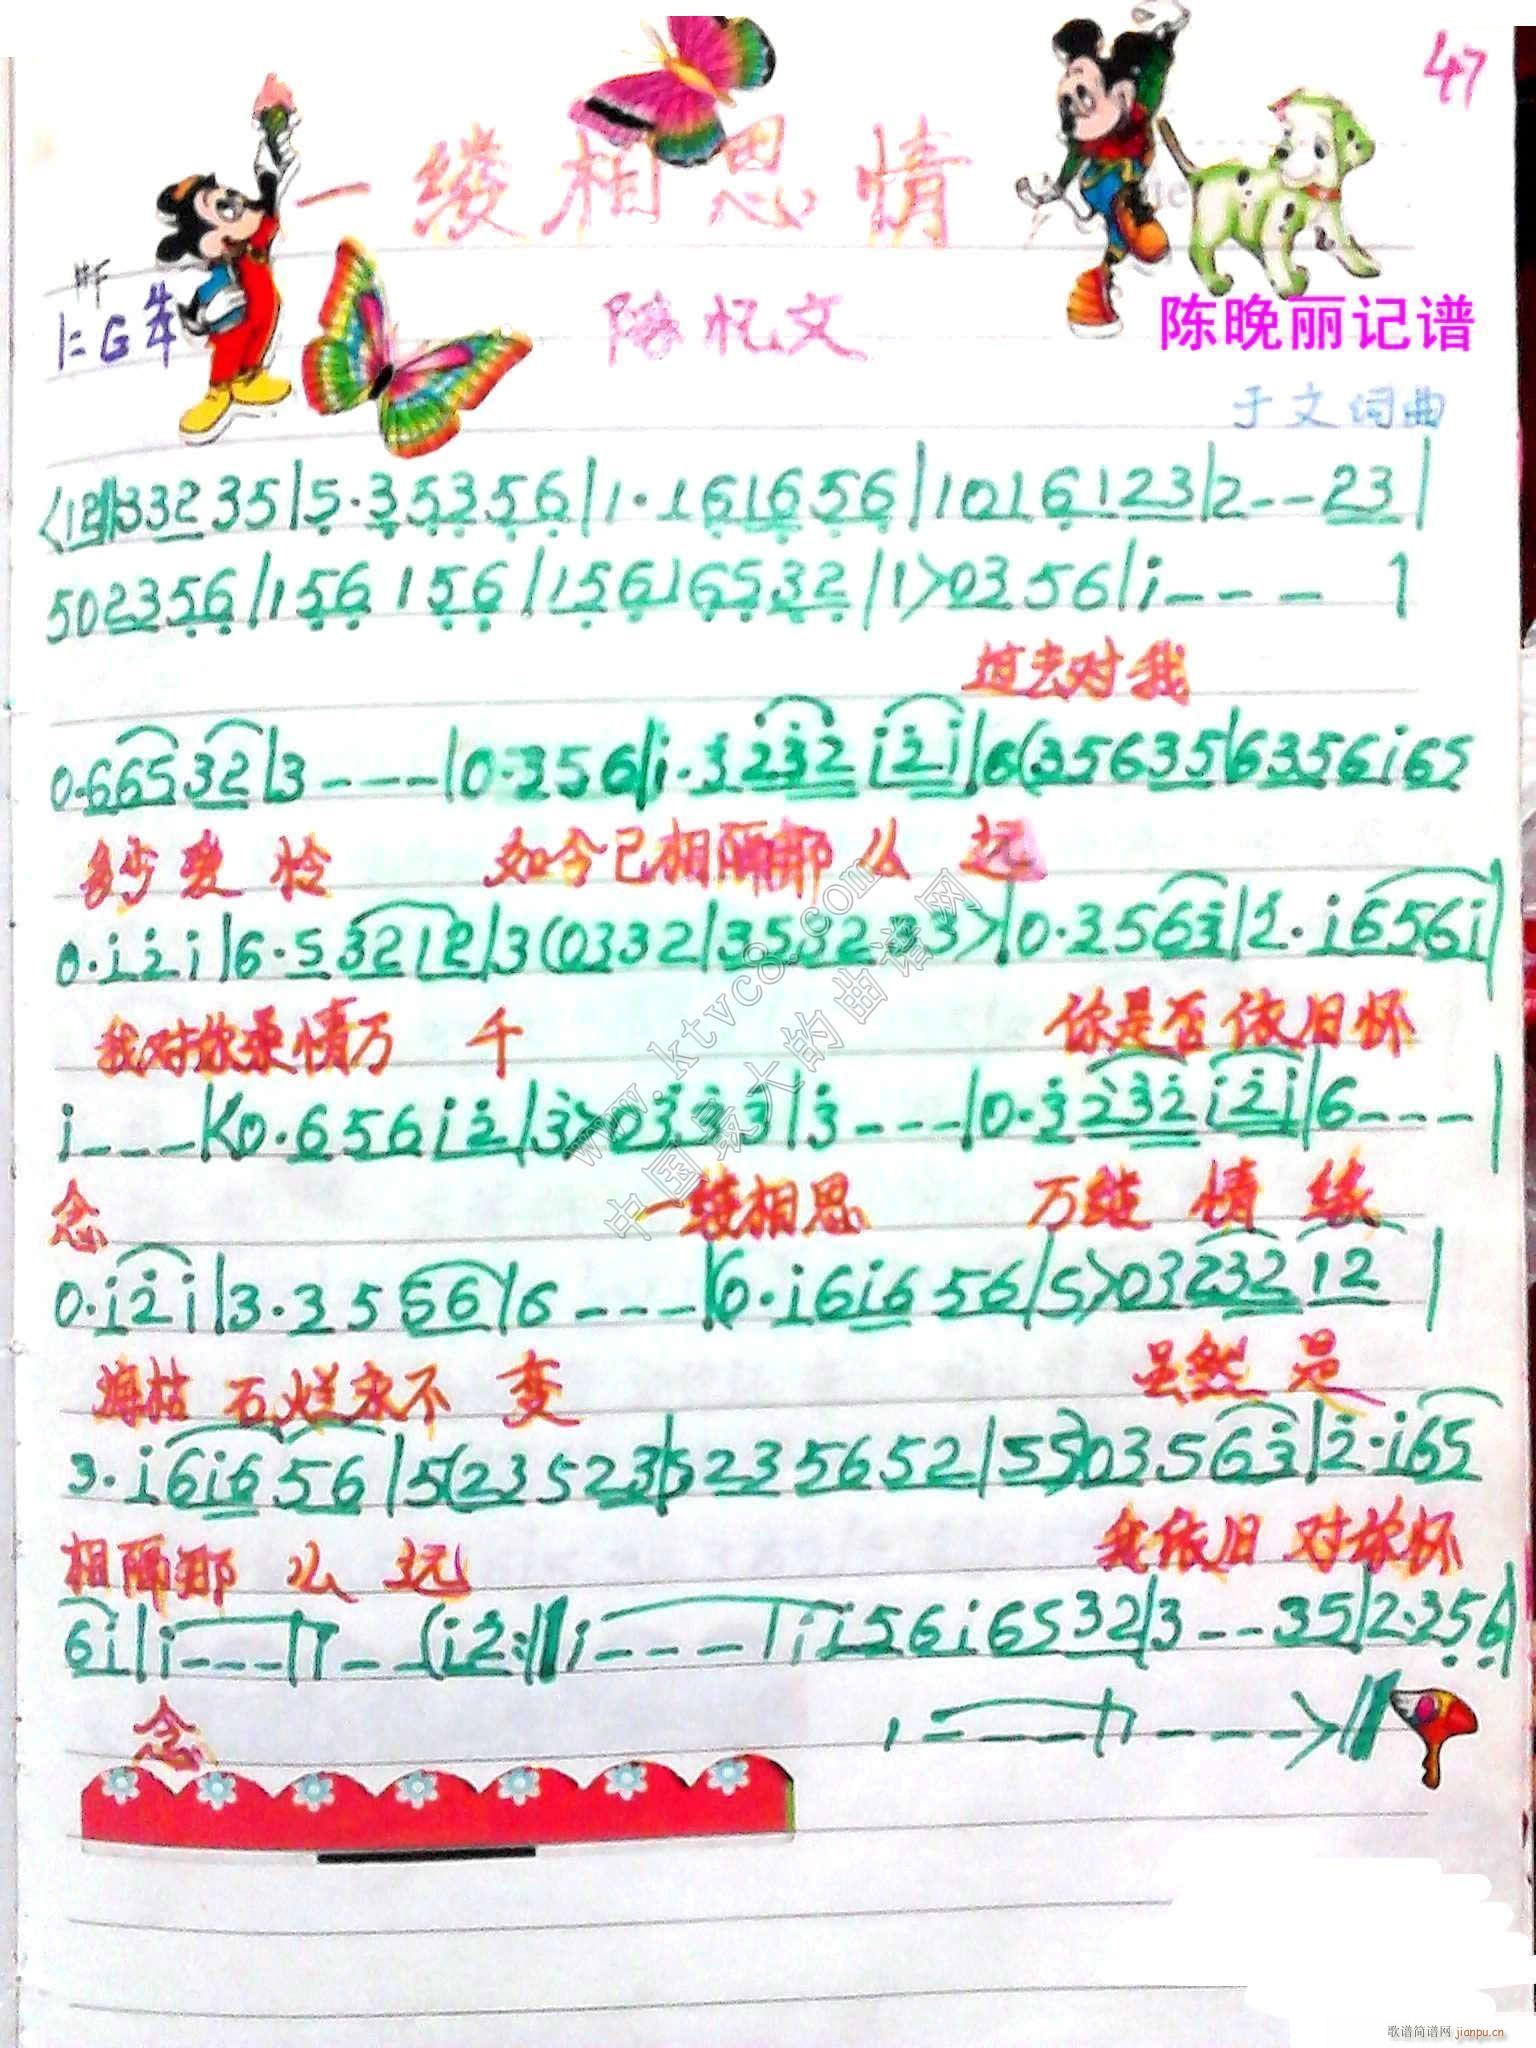 47
一缕相思情
#F
1=G 4/4
陈忆文
陈晚丽记谱
于文词曲
<12‖332 35|5·35356|1·161656|1016123|2--23|
502356|156 156|15616532|1>0356|i---|
过去对我
0·66532|3----|0·356|i·3232i2i|6(35635|6356i65
多少爱怜 如今已相隔那么远
0·i2i|6·53212|3(0332|353233>|0·3563|2·i656i|
我对你柔情万千 你是否依旧怀
i---|<0·656i2|3>0333|3---|0·3232i2i|6----|
念 一缕相思 万缕情缘
0·i2i|3·3556|6----|6·i6i656|5>0323212|
海枯石烂永不变 虽然是
3·i6i656|5(23523|5235652|55)03563|2·i65
相隔那么远 我依旧对你怀
6i|i---|i--(i2:‖i----|ii56i6532|3--35|2·356|
念
1----|1---->‖
www.ktvc8.com
中国最大的曲谱网
歌谱简谱网 jianpu.cn